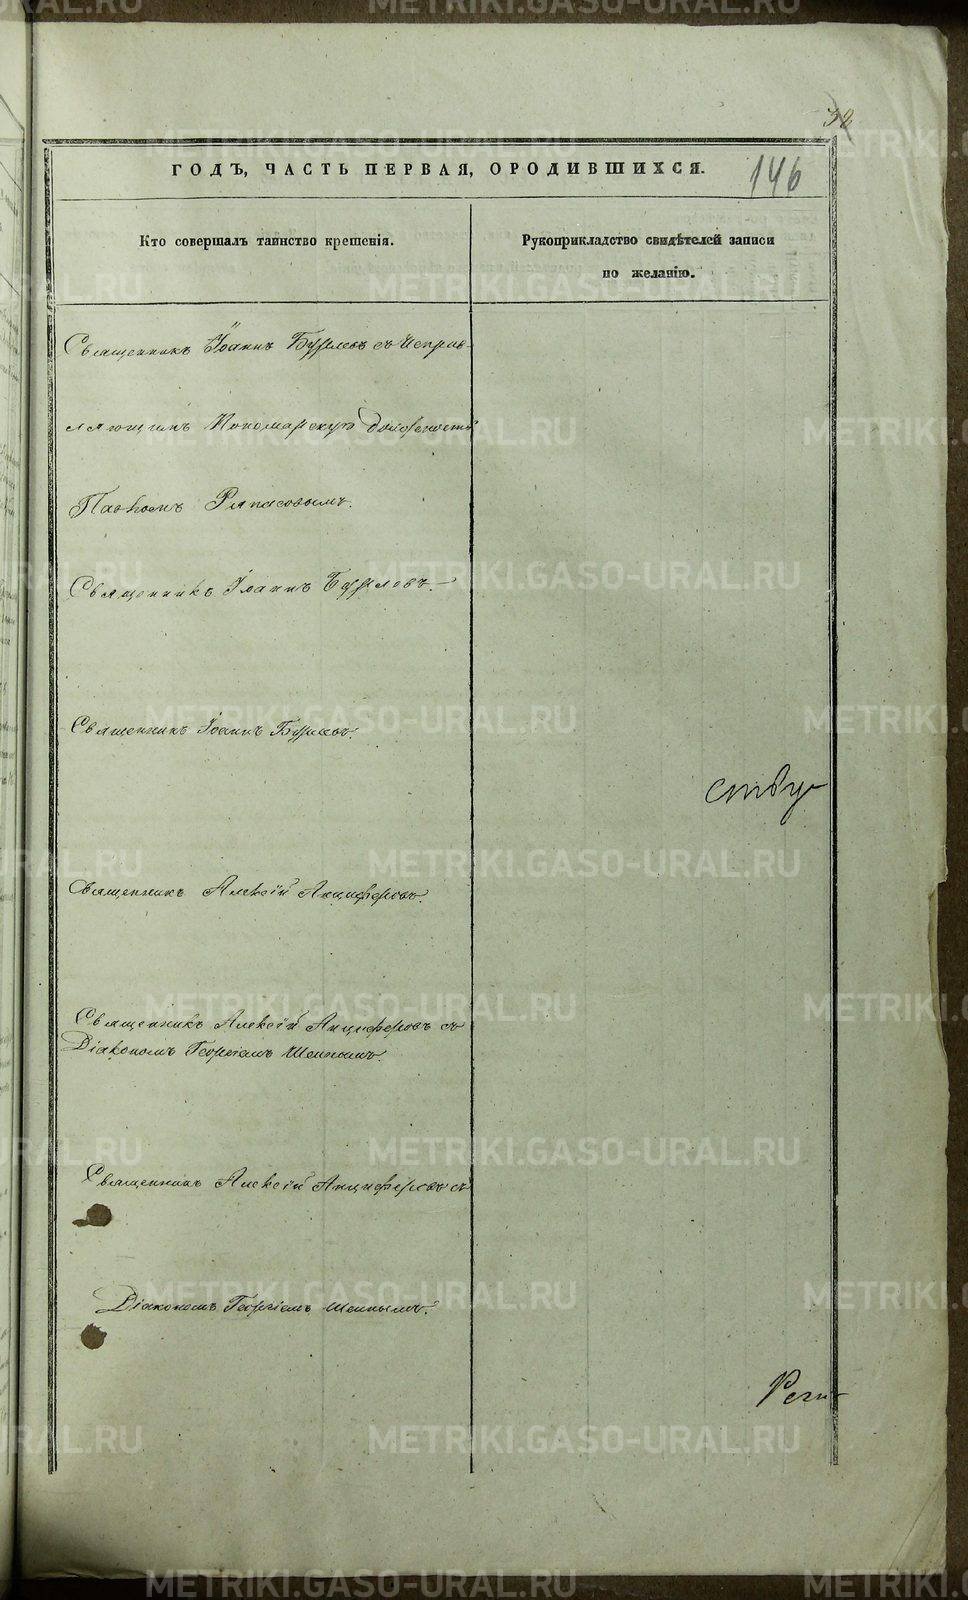 38
ГОДЪ, ЧАСТЬ ПЕРВАЯ, О РОДИВШИХСЯ.
146
Кто совершалъ таинство крещенія.
Рукоприкладство свидѣтелей записи
по желанію.
Священникъ Іоаннъ съ исправ-
ляющимъ Пономарскую должность
Павломъ
Священникъ Іоаннъ
Священникъ Іоаннъ
Священникъ Алексѣй Анциферовъ.
Священникъ Алексѣй Анциферовъ съ
Діакономъ Георгіемъ
Священникъ Алексѣй Анциферовъ съ
Діакономъ Георгіемъ
METRIKI.GASO-URAL.RU